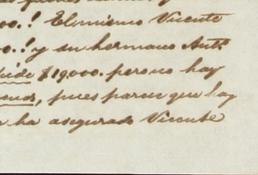 00.! El mismo Vicente
00.! y su hermano Anto
pide $19.000. pero no hay
pues parece que hay
ha asegurado Vicente